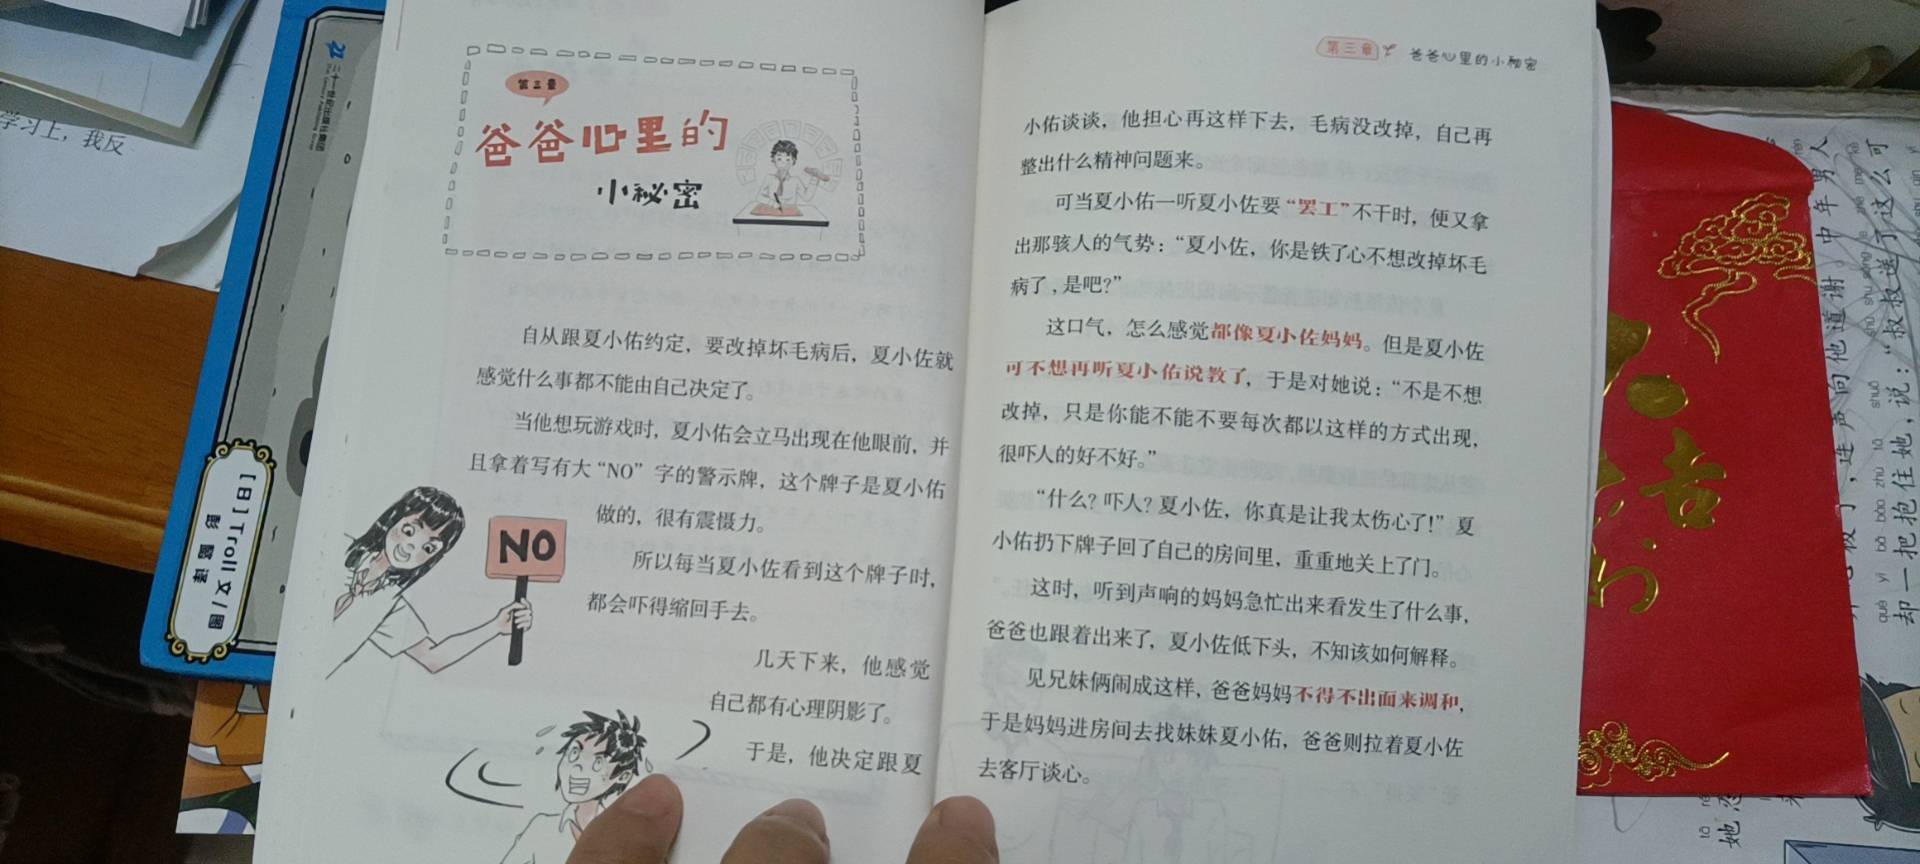 学习上，我反
二十一世纪出版社集团
[日]Troll 文/图
彭懿 译
第三章
爸爸心里的
小秘密
自从跟夏小佑约定，要改掉坏毛病后，夏小佐就
感觉什么事都不能由自己决定了。
当他想玩游戏时，夏小佑会立马出现在他眼前，并
且拿着写有大“NO”字的警示牌，这个牌子是夏小佑
做的，很有震慑力。
NO
所以每当夏小佐看到这个牌子时，
都会吓得缩回手去。
几天下来，他感觉
自己都有心理阴影了。
于是，他决定跟夏
第三章 爸爸心里的小秘密
小佑谈谈，他担心再这样下去，毛病没改掉，自己再
整出什么精神问题来。
可当夏小佑一听夏小佐要“罢工”不干时，便又拿
出那骇人的气势：“夏小佐，你是铁了心不想改掉坏毛
病了，是吧？”
这口气，怎么感觉都像夏小佐妈妈。但是夏小佐
可不想再听夏小佑说教了，于是对她说：“不是不想
改掉，只是你能不能不要每次都以这样的方式出现，
很吓人的好不好。”
“什么？吓人？夏小佐，你真是让我太伤心了！”夏
小佑扔下牌子回了自己的房间里，重重地关上了门。
这时，听到声响的妈妈急忙出来看发生了什么事，
爸爸也跟着出来了，夏小佐低下头，不知该如何解释。
见兄妹俩闹成这样，爸爸妈妈不得不出面来调和，
于是妈妈进房间去找妹妹夏小佑，爸爸则拉着夏小佐
去客厅谈心。
吉
连声向他道谢。中年男人
却一把抱住她，说：“叔叔送了这么可